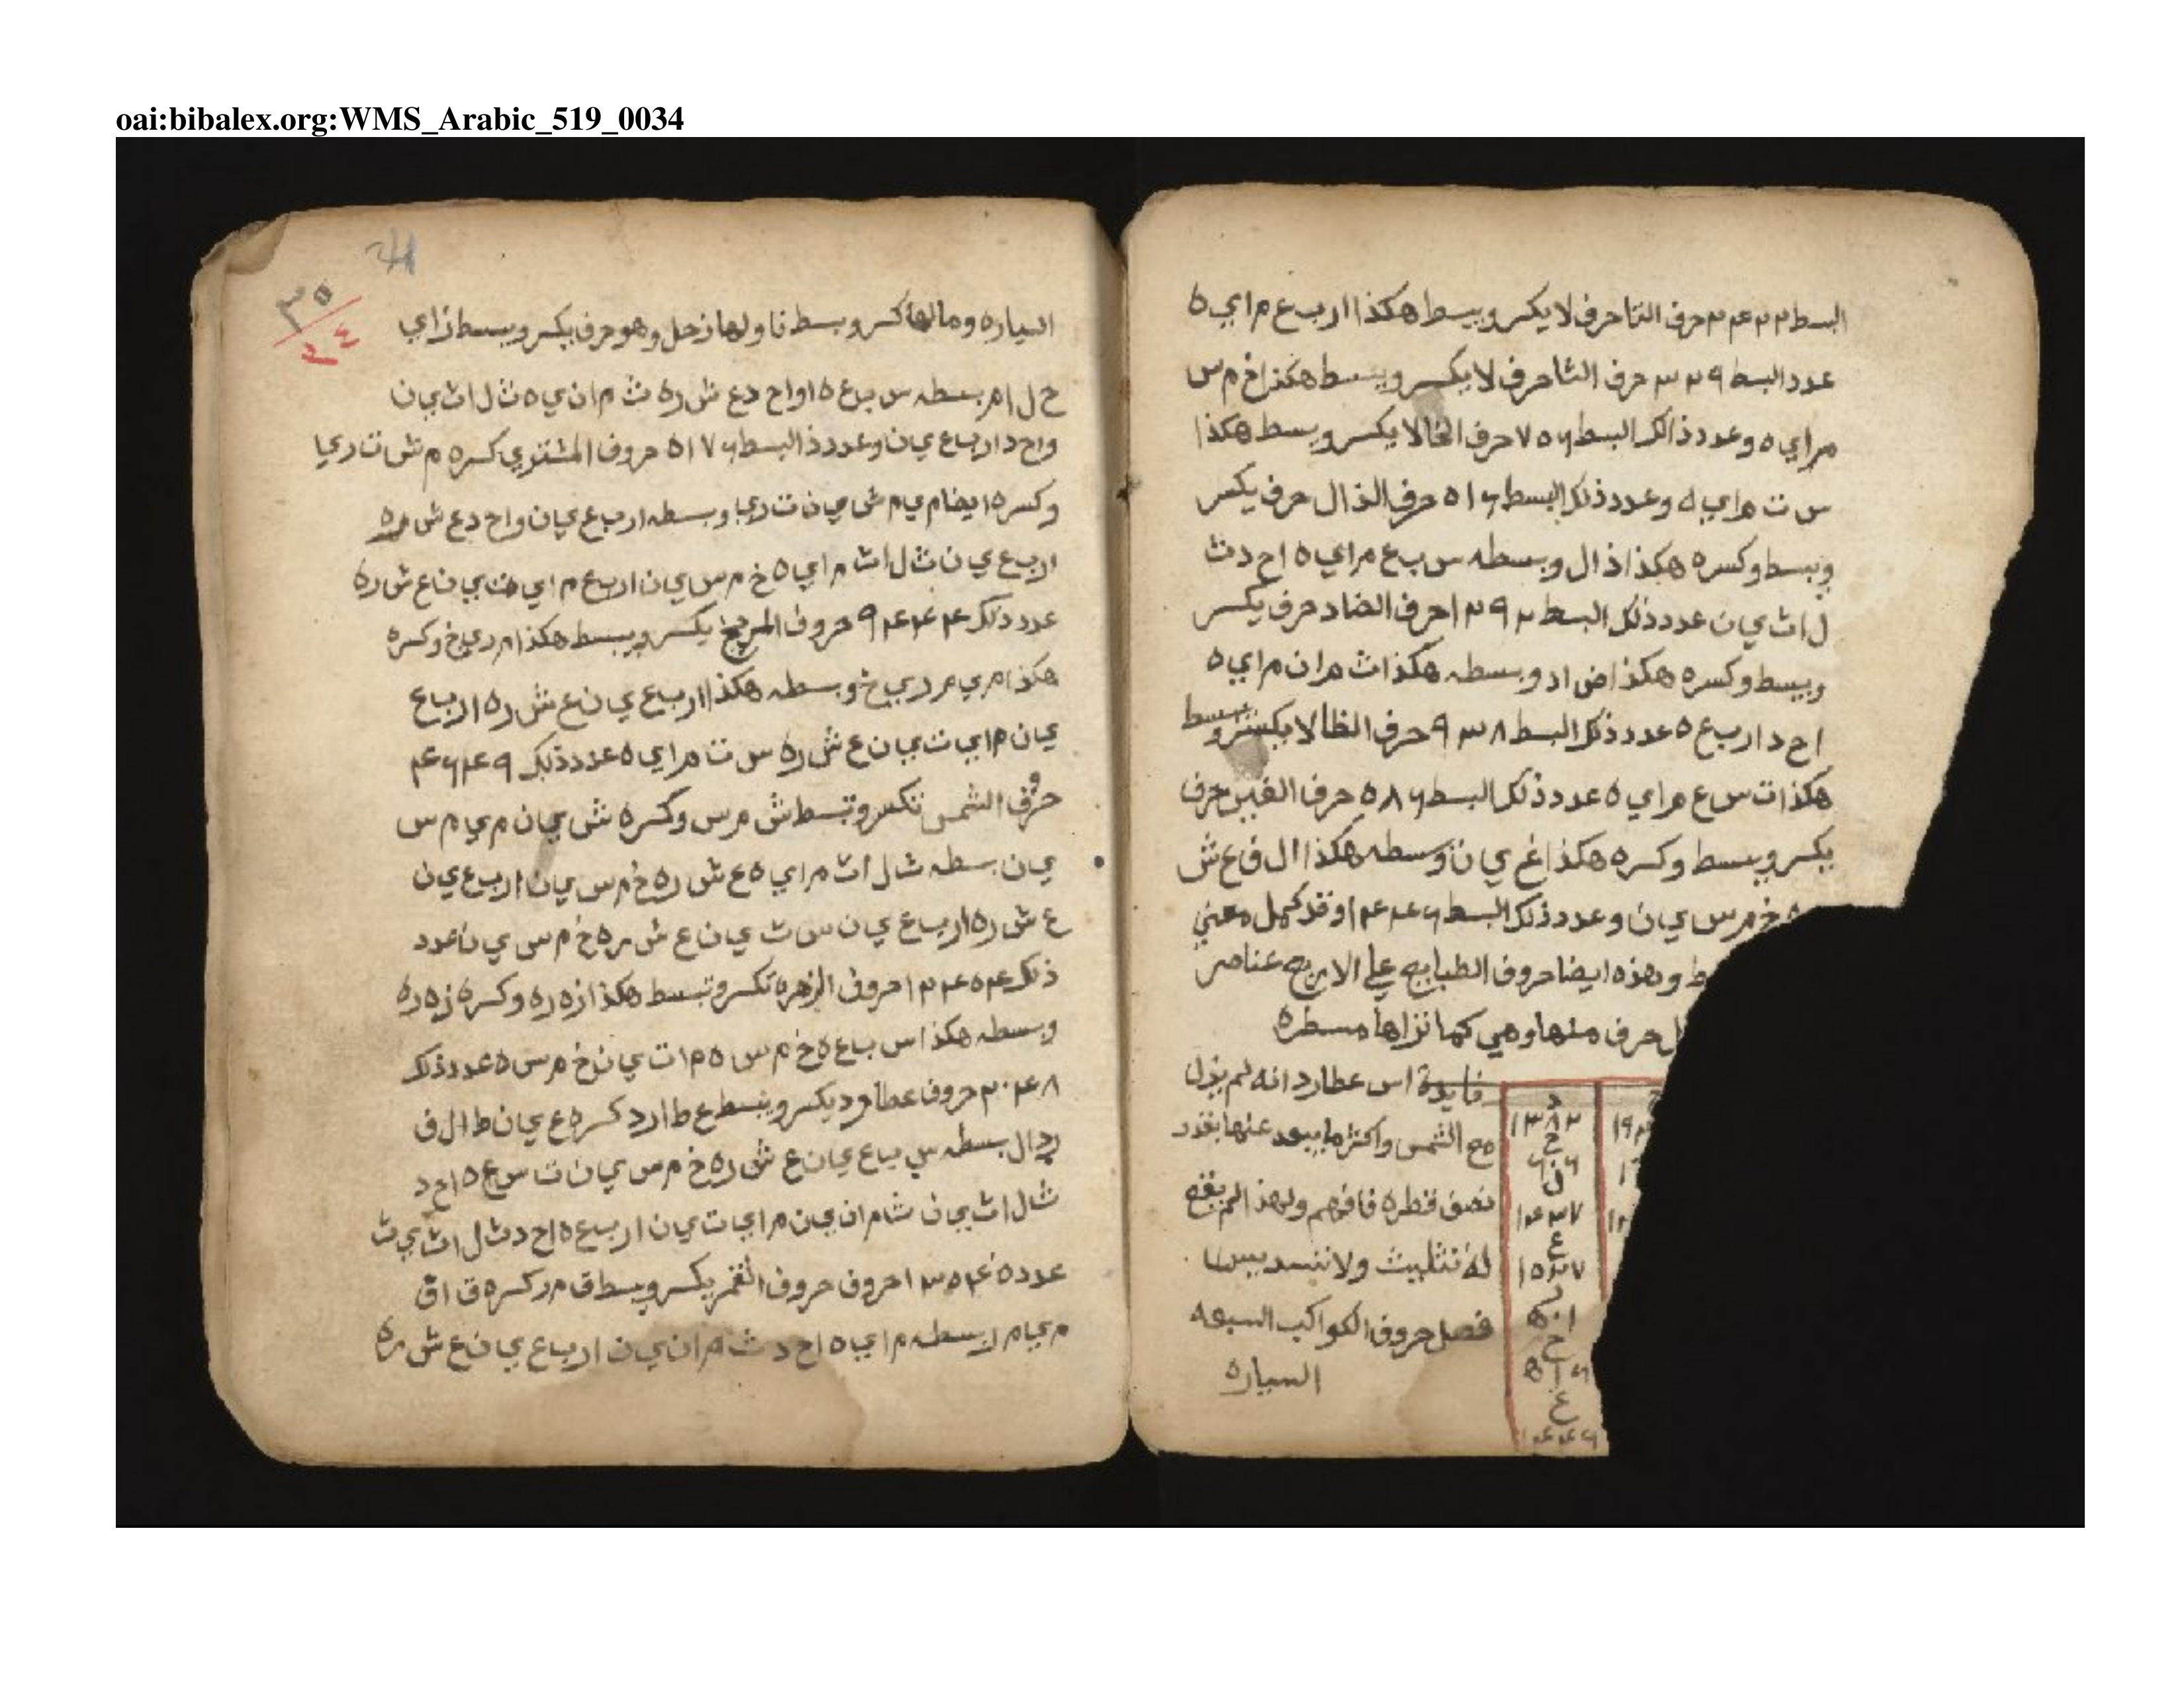 oai:bibalex.org:WMS_Arabic_519_0034
البسط ٣٢٤٢ حرف التا حرف لا يكسر ويبسط هكذا ا ر ب ع م ا ي ه
عدد البسط ٣٢٩ حرف الثا حرف لا يكسر ويبسط هكذا خ م س
م ا ي ه وعدد ذالك البسط ٧٥٦ حرف الخا لا يكسر ويبسط هكذا
س ت م ا ي ه وعدد ذلك البسط ٥١٦ حرف الذال حرف يكسر
ويبسط وكسره هكذا ذ ا ل وبسطه س ب ع م ا ي ه ا ح د ث
ل ا ث ي ن عدد ذلك البسط ١٢٩٢ حرف الضاد حرف يكسر
ويبسط وكسره هكذا ض ا د وبسطه هكذا ث م ا ن م ا ي ه
ا ح د ا ر ب ع ه عدد ذلك البسط ٩٣٨ حرف الظا لا يكسر ويبسط
هكذا ت س ع م ا ي ه عدد ذلك البسط ٥٨٦ حرف الغين حرف
يكسر ويبسط وكسره هكذا غ ي ن وبسطه هكذا ا ل ف ع ش
ه خ م س ي ن وعدد ذلك البسط ١٤٤٦ وقد كمل معني
ط وهذه ايضا حروف الطبايع علي الاربع عناصر
ل حرف منها وهي كما نراها مسطره
فايدة اس عطارد انه لم يزل
مع الشمس واكثر ما يبعد عنها بقدر
نصف قطره فافهم ولهذا لم يقع
له تثليث ولا تسديس
فصل حروف الكواكب السبعه
السياره
د
١٣٨٢
خ
ن
١٤٣٧
ع
١٥٣٧
ر
٥٠١
خ
٥١٦
غ
١٤٤٦
34
٣٥
٣٤
السياره وما لها كسر وبسط فاولها زحل وهو حرف يكسر ويبسط ز ا ي
ح ل ا م بسطه س ب ع ه ا و ا ح د ع ش ر ه ث م ا ن ي ه ث ل ا ث ي ن
و ا ح د ا ر ب ع ي ن وعدد ذ البسط ٥١٧٦ حروف المشتري كسره م ش ت ر ي ا
وكسره ايضا م ي م ش ي ن ت ر ي ا وبسطه ا ر ب ع ي ن و ا ح د ع ش ر ه
ا ر ب ع ي ن ث ل ا ث م ا ي ه خ م س ي ن ا ر ب ع م ا ي ع ش ر ه
عدد ذلك ٩٤٤٤ حروف المريخ يكسر ويبسط هكذا م ر ي خ وكسره
هكذا م ي م ر ي خ وبسطه هكذا ا ر ب ع ي ن ع ش ر ه ا ر ب ع
ي ن م ا ي ت ي ن ع ش ر ه س ت م ا ي ه عدد ذلك ٤٦٤٩
حروف الشمس تكسر وتبسط ش م س وكسره ش ي ن م ي م س
ي ن بسطه ث ل ا ث م ا ي ه ع ش ر ه خ م س ي ن ا ر ب ع ي ن
ع ش ر ه ا ر ب ع ي ن س ت ي ن ع ش ر ه خ م س ي ن عدد
ذلك ١٢٤٥٤ حروف الزهره تكسر وتبسط هكذا ز ه ر ه وكسره ز ه ر ه
وبسطه هكذا س ب ع ه خ م س ه م ا ت ي ن خ م س ه عدد ذلك
٢٠٤٨ حروف عطارد يكسر ويبسط ع ط ا ر د كسره ع ي ن ط ا ل ف
ر د ا ل بسطه س ب ع ي ن ع ش ر ه خ م س ي ن ت س ع ه ا ح د
ث ل ا ث ي ن ث م ا ن ي ن م ا ي ت ي ن ا ر ب ع ه ا ح د ث ل ا ث ي ن
عدده ١٣٥٤ حروف حروف القمر يكسر ويبسط ق م ر كسره ق ا ف
م ي م ر بسطه م ا ي ه ا ح د ث م ا ن ي ن ا ر ب ع ي ن ع ش ر ه